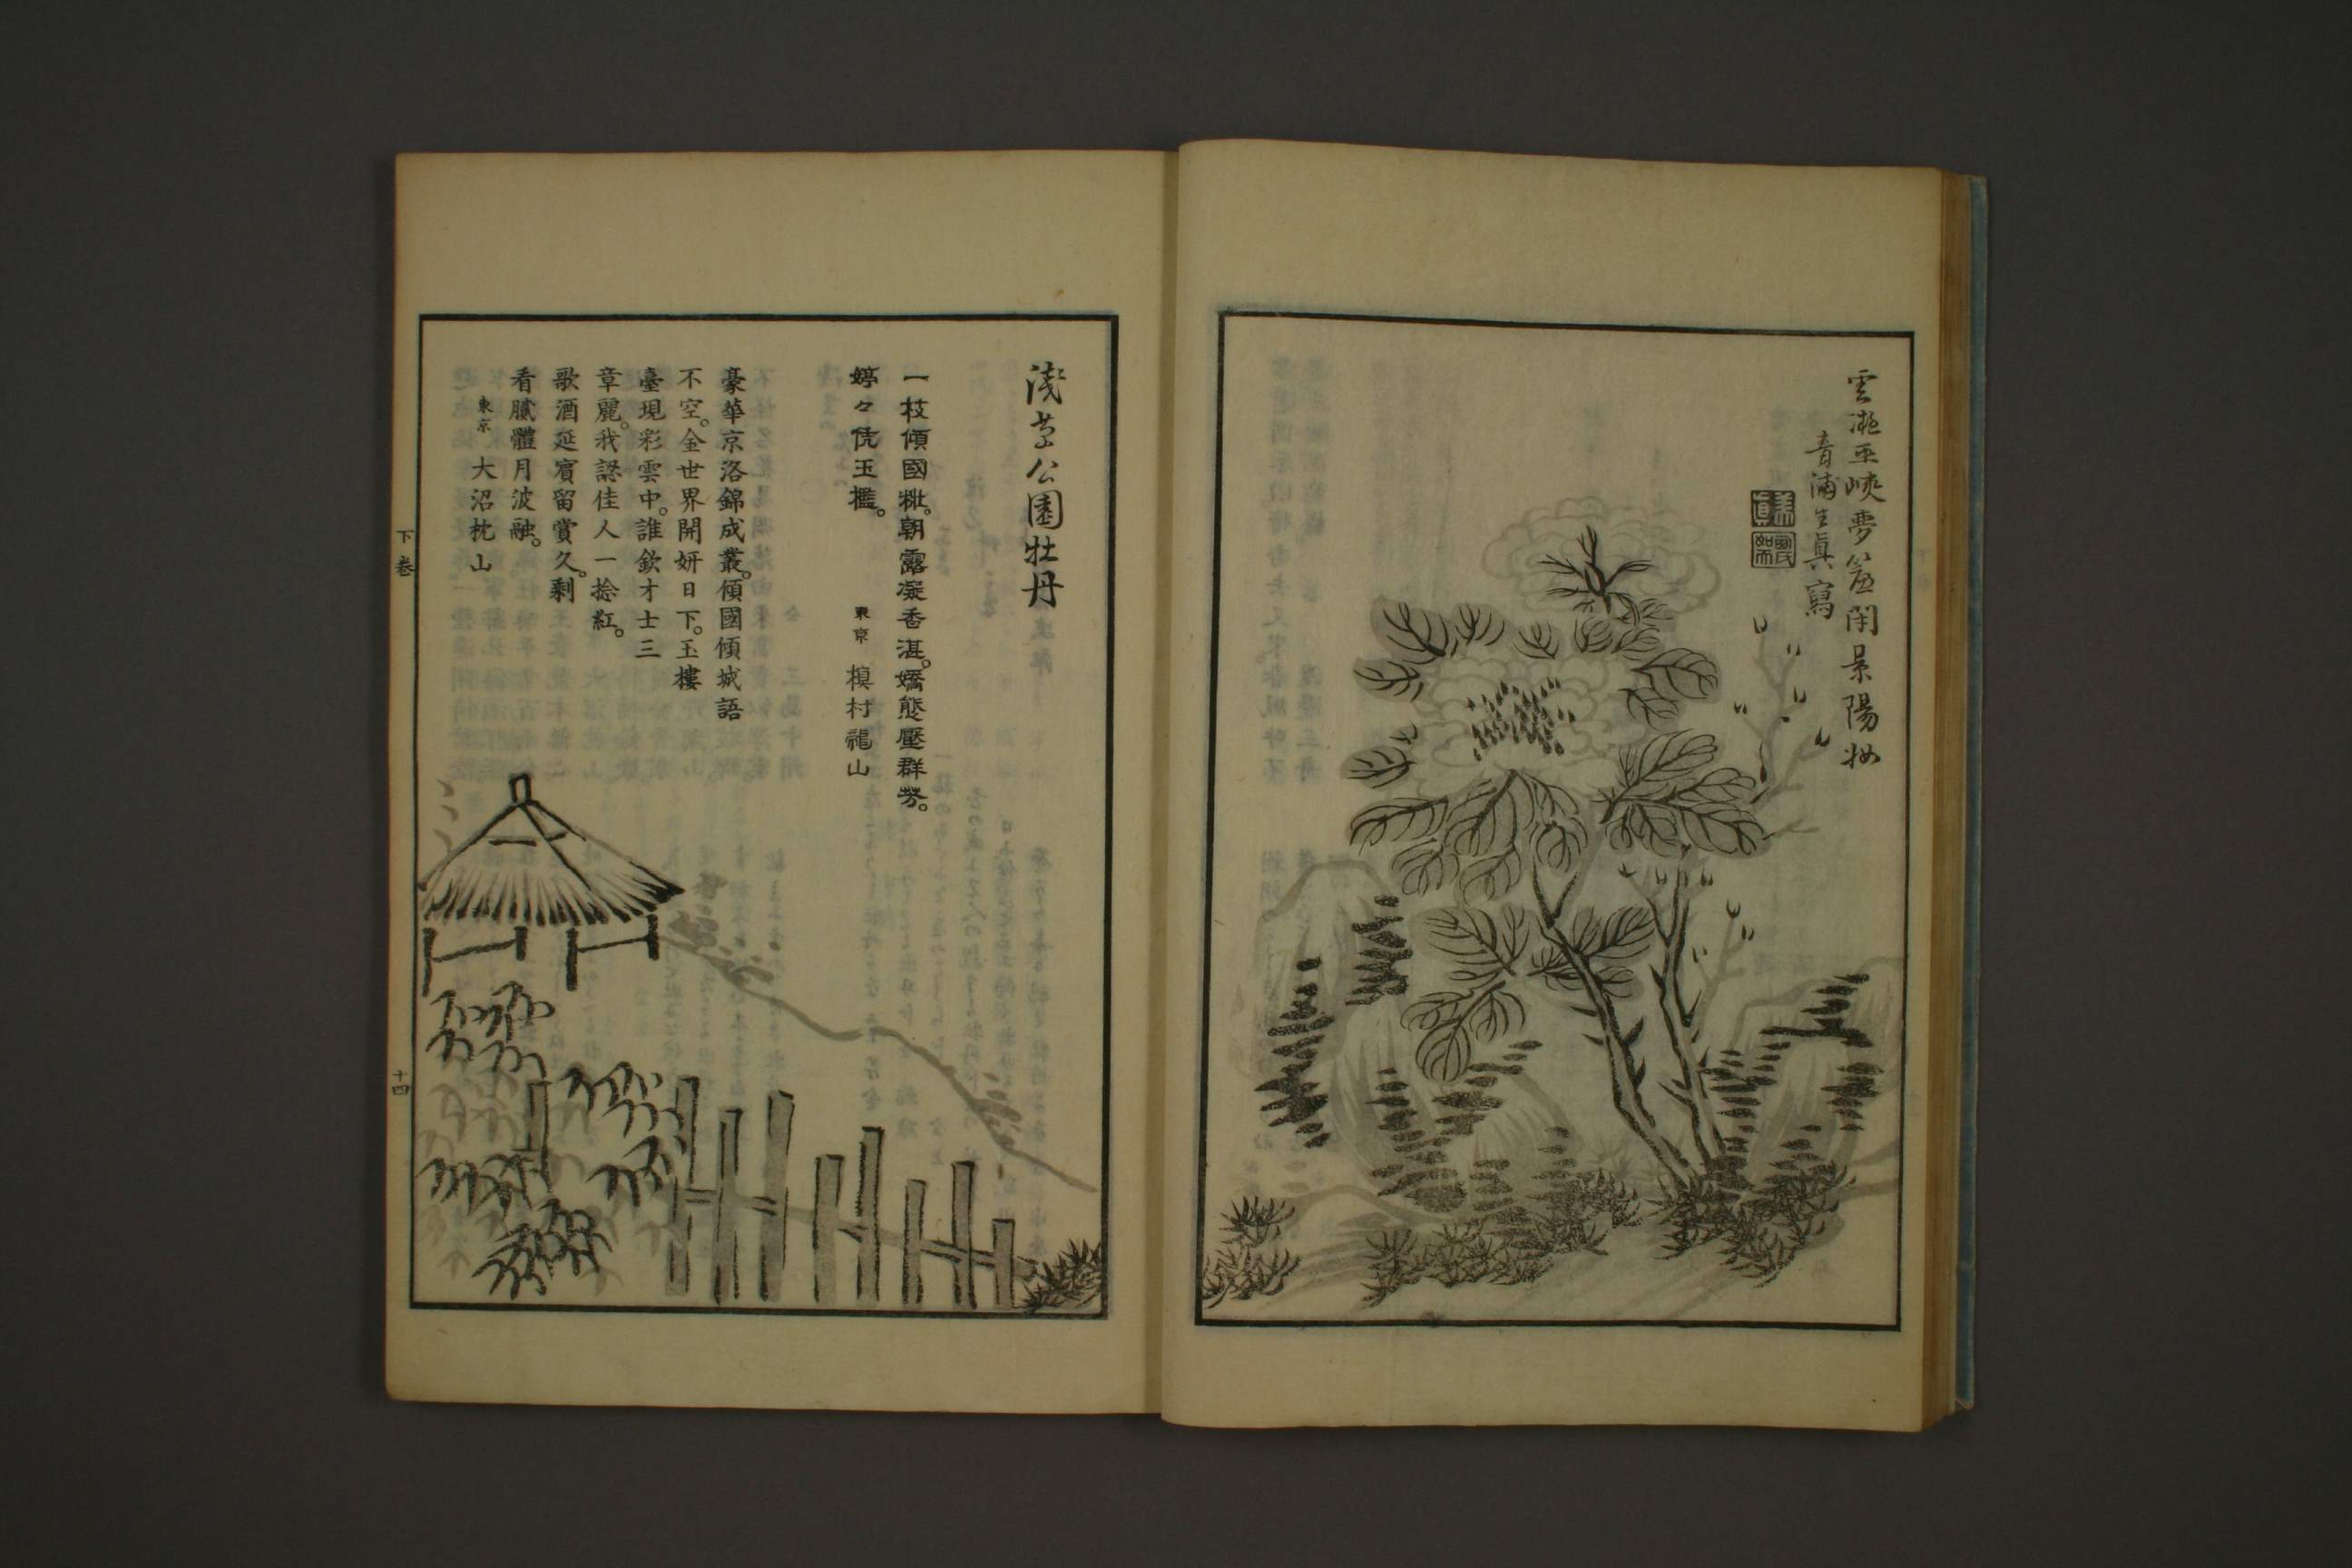 雲瀍巫峽夢簾閑景陽妝
青浦生真寫
淺草公園牡丹
一枝傾國粧。朝露凝香湛。嬌態壓群芳。
婷々凭玉檻。
東京 槙村龍山
豪華京洛錦成叢。傾國傾城語
不空。金世界開妍日下。玉樓
臺現彩雲中。誰欽才士三
章麗。我認佳人一捻紅。
歌酒延賓留賞久。剩
看膩體月波融。
東京 大沼枕山
下卷
十四